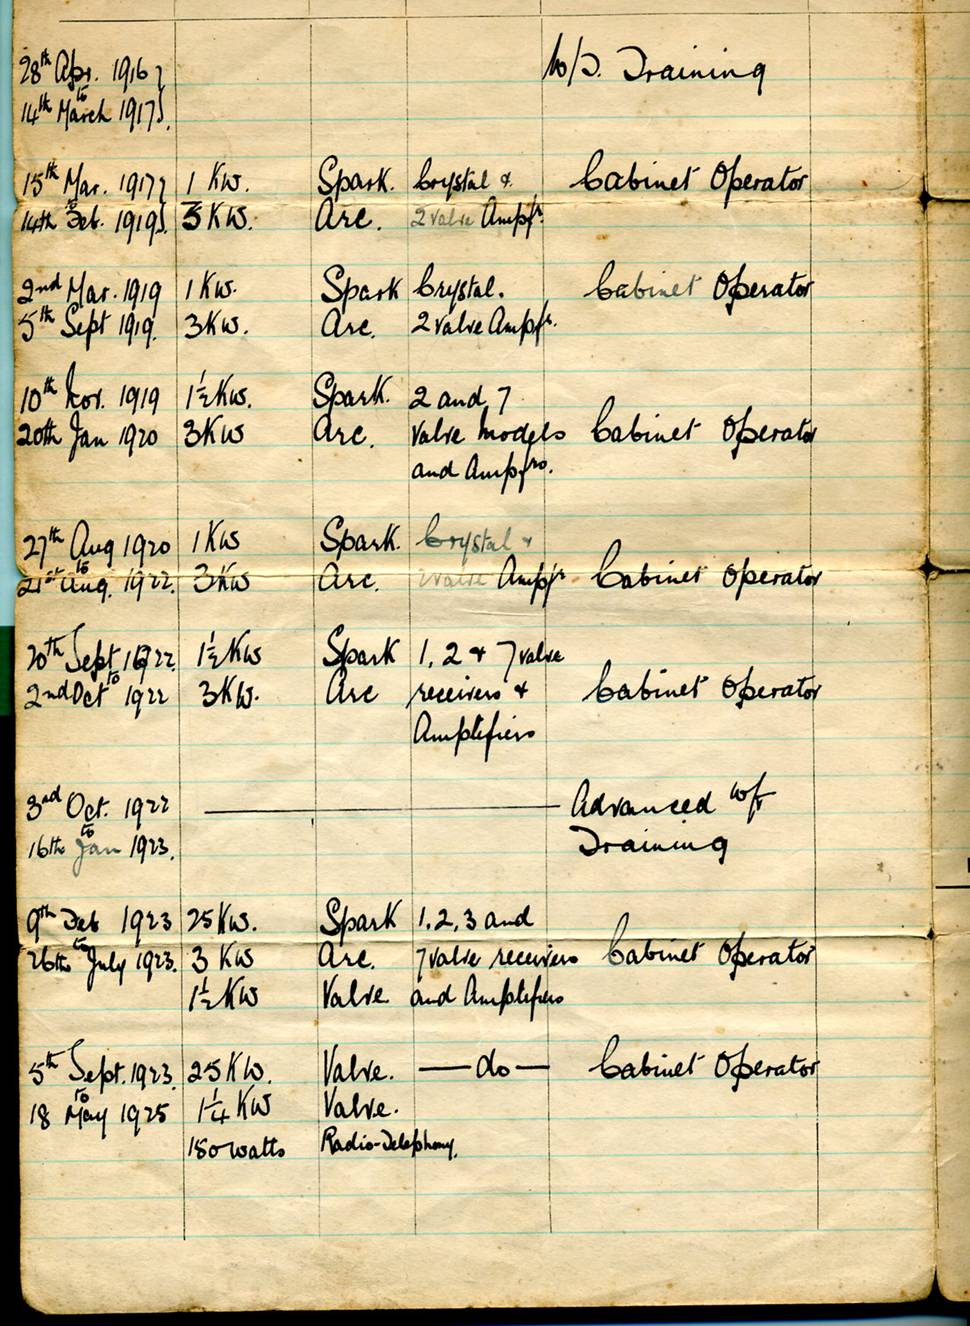 28th Apr. 1916 W/T. Training
to
14th March 1917.
15th Mar. 1917 1 KW. Spark. Crystal & Cabinet Operator
to
14th Feb. 1919. 3 KW. Arc. 2 valve Ampfr.
2nd Mar. 1919 1 KW. Spark Crystal. Cabinet Operator
5th Sept 1919. 3KW. Arc. 2 valve Ampfr.
10th Nov. 1919 1½KW. Spark. 2 and 7
20th Jan 1920 3KW Arc. valve models Cabinet Operator
and Ampfrs.
27th Aug 1920 1 KW Spark. Crystal &
to
21st Aug. 1922. 3KW Arc. 2 valve Ampfr Cabinet Operator
20th Sept 1922. 1½KW Spark 1, 2 & 7 valve
to
2nd Oct 1922 3KW. Arc receivers & Cabinet Operator
Amplifiers
3rd Oct. 1922 Advanced W/T
to
16th Jan 1923. Training
9th Feb 1923 25KW. Spark 1, 2, 3 and
to
26th July 1923. 3 KW Arc. 7 valve receivers Cabinet Operator
1½KW Valve. and Amplifiers
5th Sept. 1923. 25KW. Valve. — do — Cabinet Operator
to
18 May 1925 1¼ KW Valve.
150 watts Radio-Telephony.